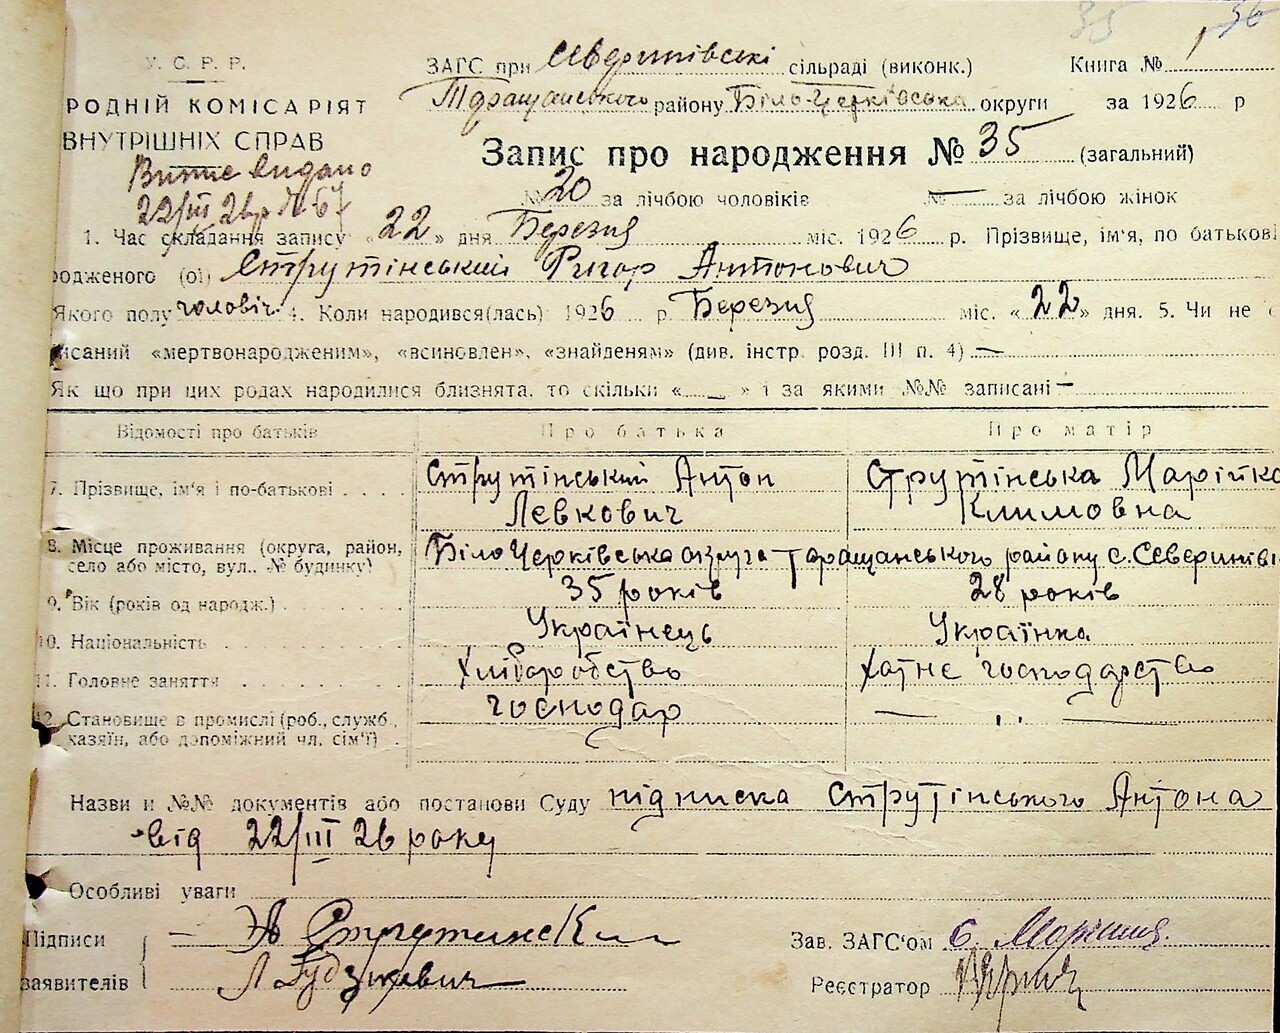 35 36
У. С. Р. Р.
ЗАГС при Севернтівські сільраді (виконк.) Книга № 1
РОДНІЙ КОМІСАРІЯТ
Таращанського району Біло-Церківська округи за 1926 р
ВНУТРІШНІХ СПРАВ
Запис про народження № 35 (загальний)
Витяг видано
22/III 26р № 67
№ 20 за лічбою чоловіків № — за лічбою жінок
1. Час складання запису «22» дня Березня міс. 1926 р. Прізвище, ім'я, по батькові
родженого (ої) Струтінський Ригор Антонович
Якого полу чоловіч. 4. Коли народився(лась) 1926 р. Березня міс. «22» дня. 5. Чи не є
писаний «мертвонародженим», «всиновлен», «знайденям» (див. інстр. розд. III п. 4) —
Як що при цих родах народилися близнята, то скільки « — » і за якими №№ записані —
Відомості про батьків Про батька Про матір
7. Прізвище, ім'я і по-батькові . . . . Струтінський Антон Струтінська Марійка
Левкович Климовна
8. Місце проживання (округа, район, село або місто, вул.. № будинку) Біло Церківська округа Таращанського району с. Северинів
9. Вік (років од народж.) 35 років 28 років
10. Національність Українець Українка
11. Головне заняття Хліборобство Хатнє господарство
12. Становище в промислі (роб., служб., хазяїн, або допоміжний чл. сім'ї) . господар — ,, —
Назви и №№ документів або постанови Суду підписка Струтінського Антона
від 22/III 26 року
Особливі уваги
Підписи — Струтинский Зав. ЗАГС'ом
заявителів Л Гудзкевич Реєстратор